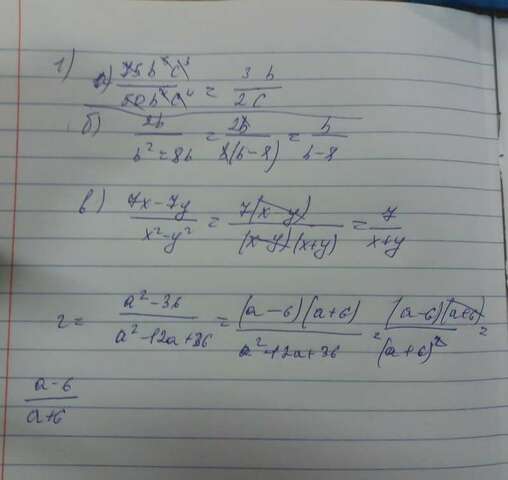 1) а) 75b⁵c³/50b⁴c⁴ = 3b/2c
б) 2b/b² = 8b = 2b/(b-8) = b/b-8
в) 7x-7y/x²-y² = 7(x-y)/(x-y)(x+y) = 7/x+y
г = a²-36/a²-12a+36 = (a-6)(a+6)/a²-12a+36 = (a-6)(a+6)/(a+6)² =
a-6/a+6